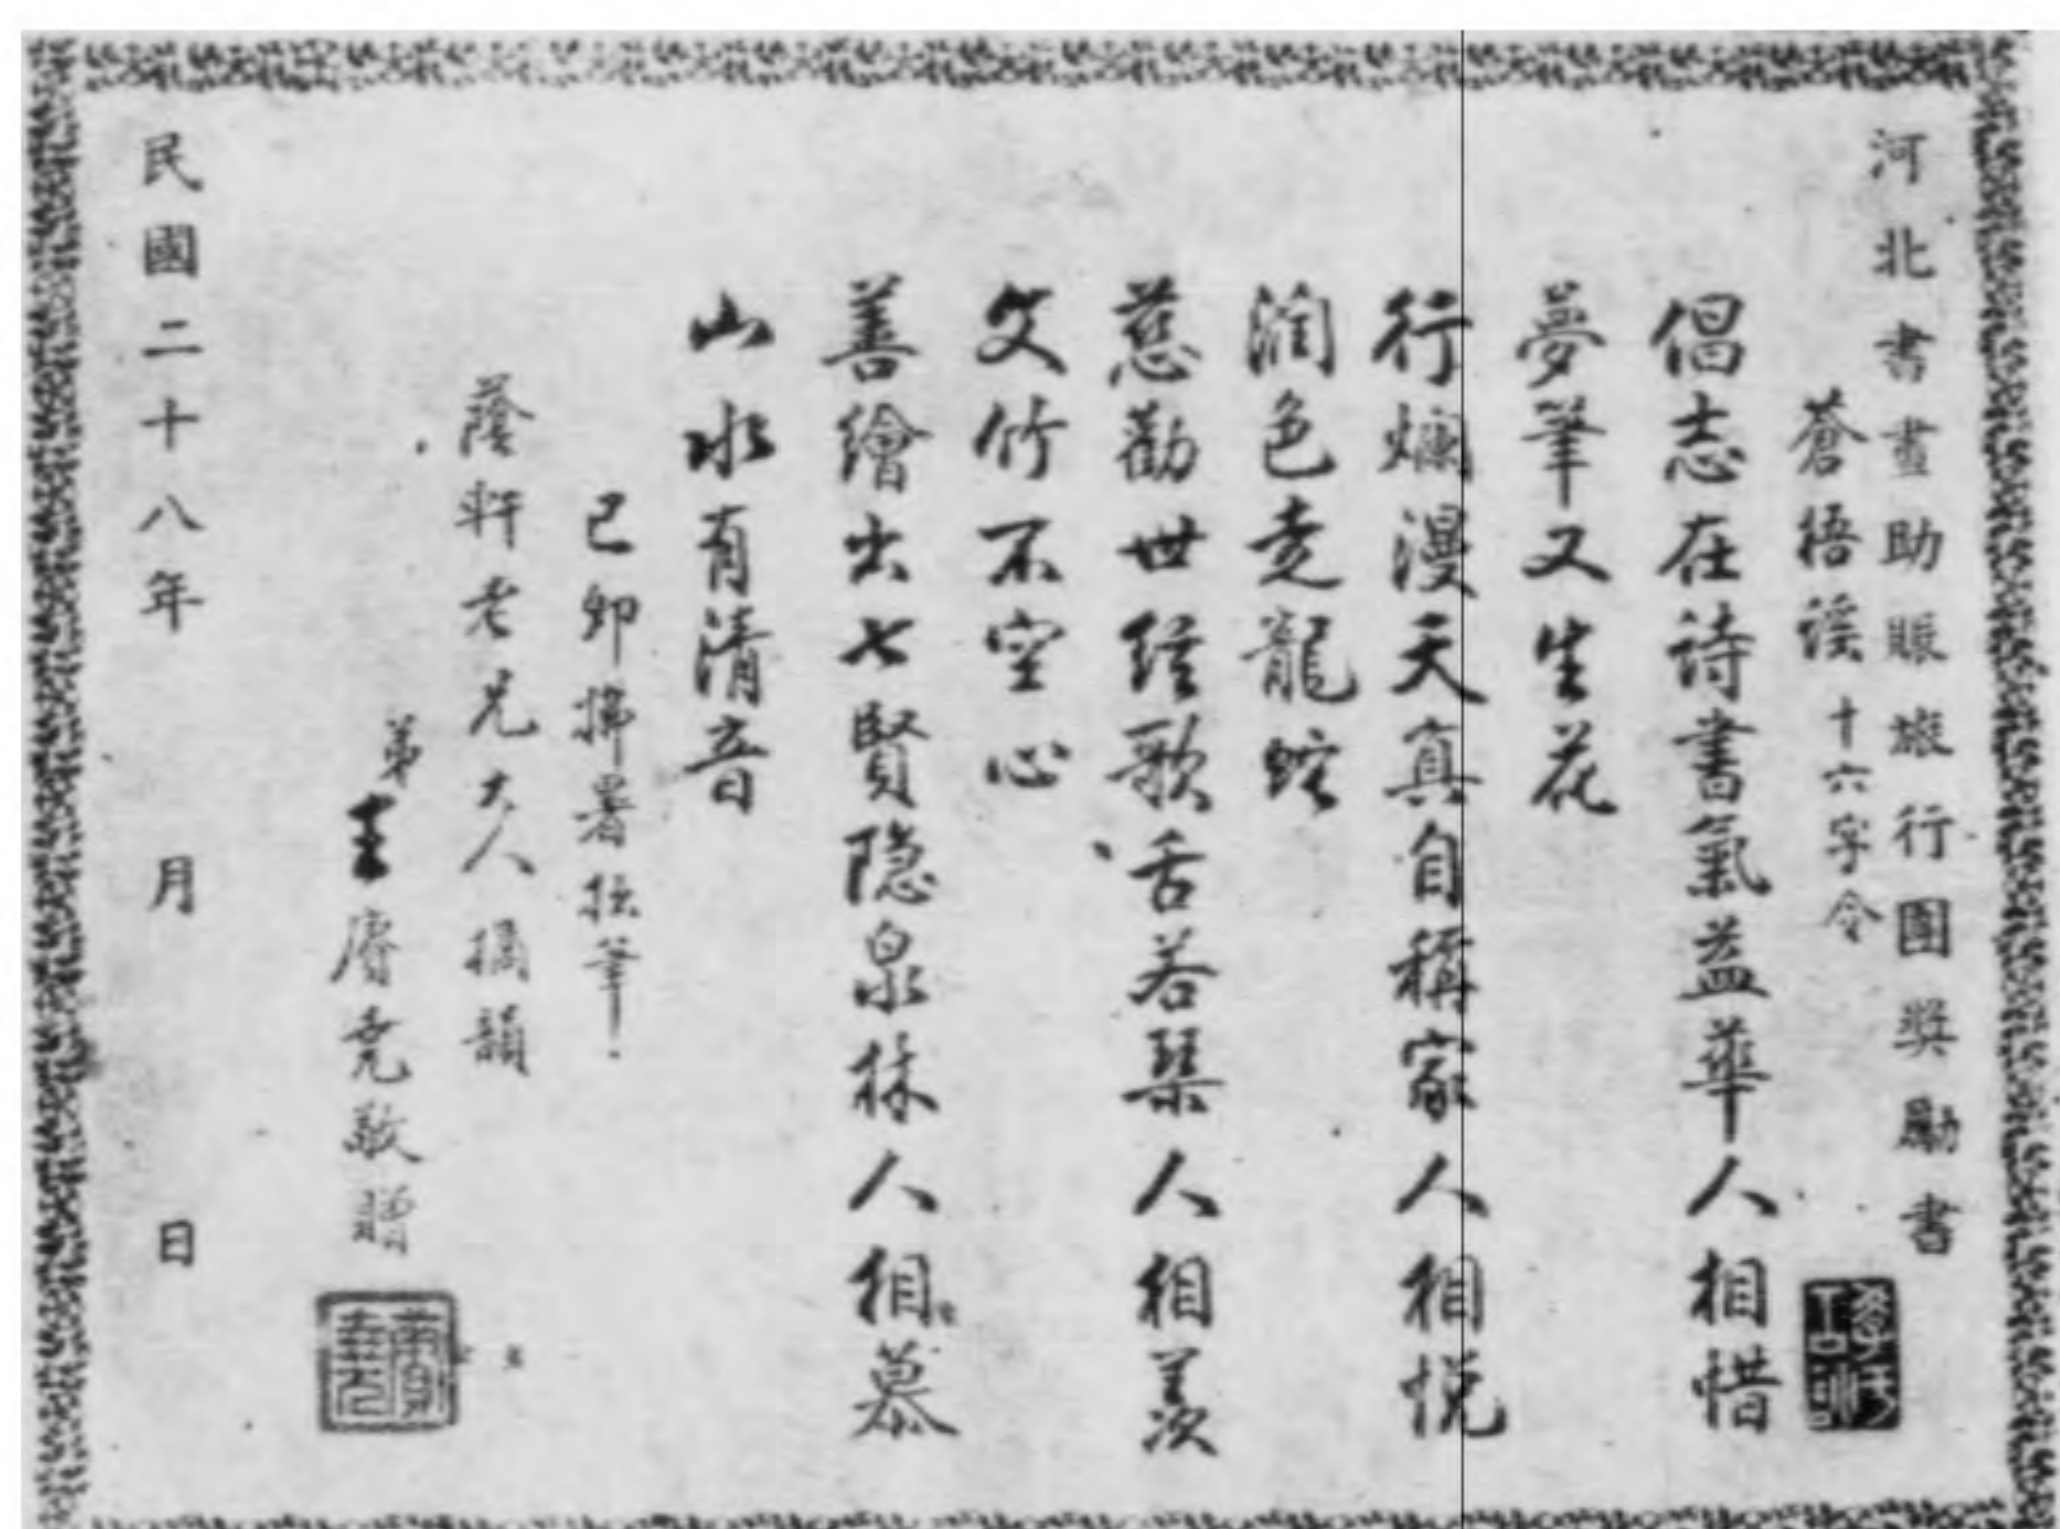 河北書畫助賑旅行團獎勵書
蒼梧溪十六字令
倡志在詩書氣益華人相惜
夢筆又生花
行爛漫天真自稱家人相悦
润色走龍蛇
慈勸世経歌舌若琹人相羡
文竹不空心
善繪出七賢隐泉林人相慕
山水有清音
己卯揮暑拙筆
蔭軒老兄大人摘韻
弟王賡堯敬贈
民國二十八年 月 日